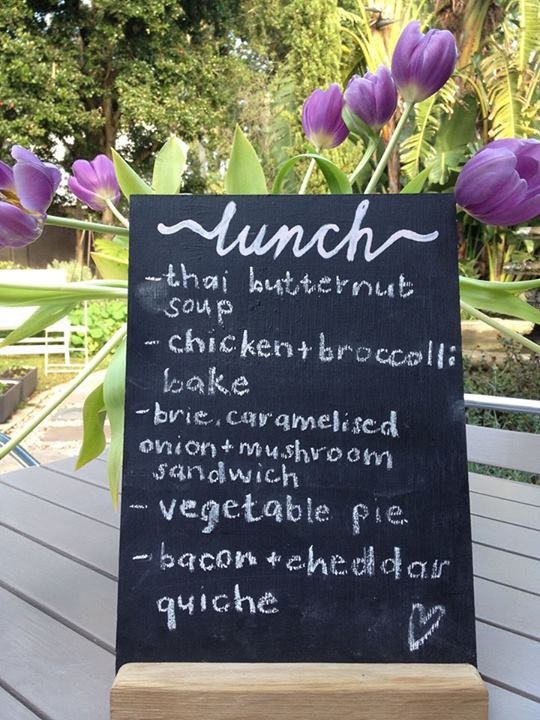 ~lunch~
-thai butternut
soup
- chicken+broccolli
bake
-brie, caramelised
onion+mushroom
sandwich
- vegetable pie
- bacon+cheddar
quiche